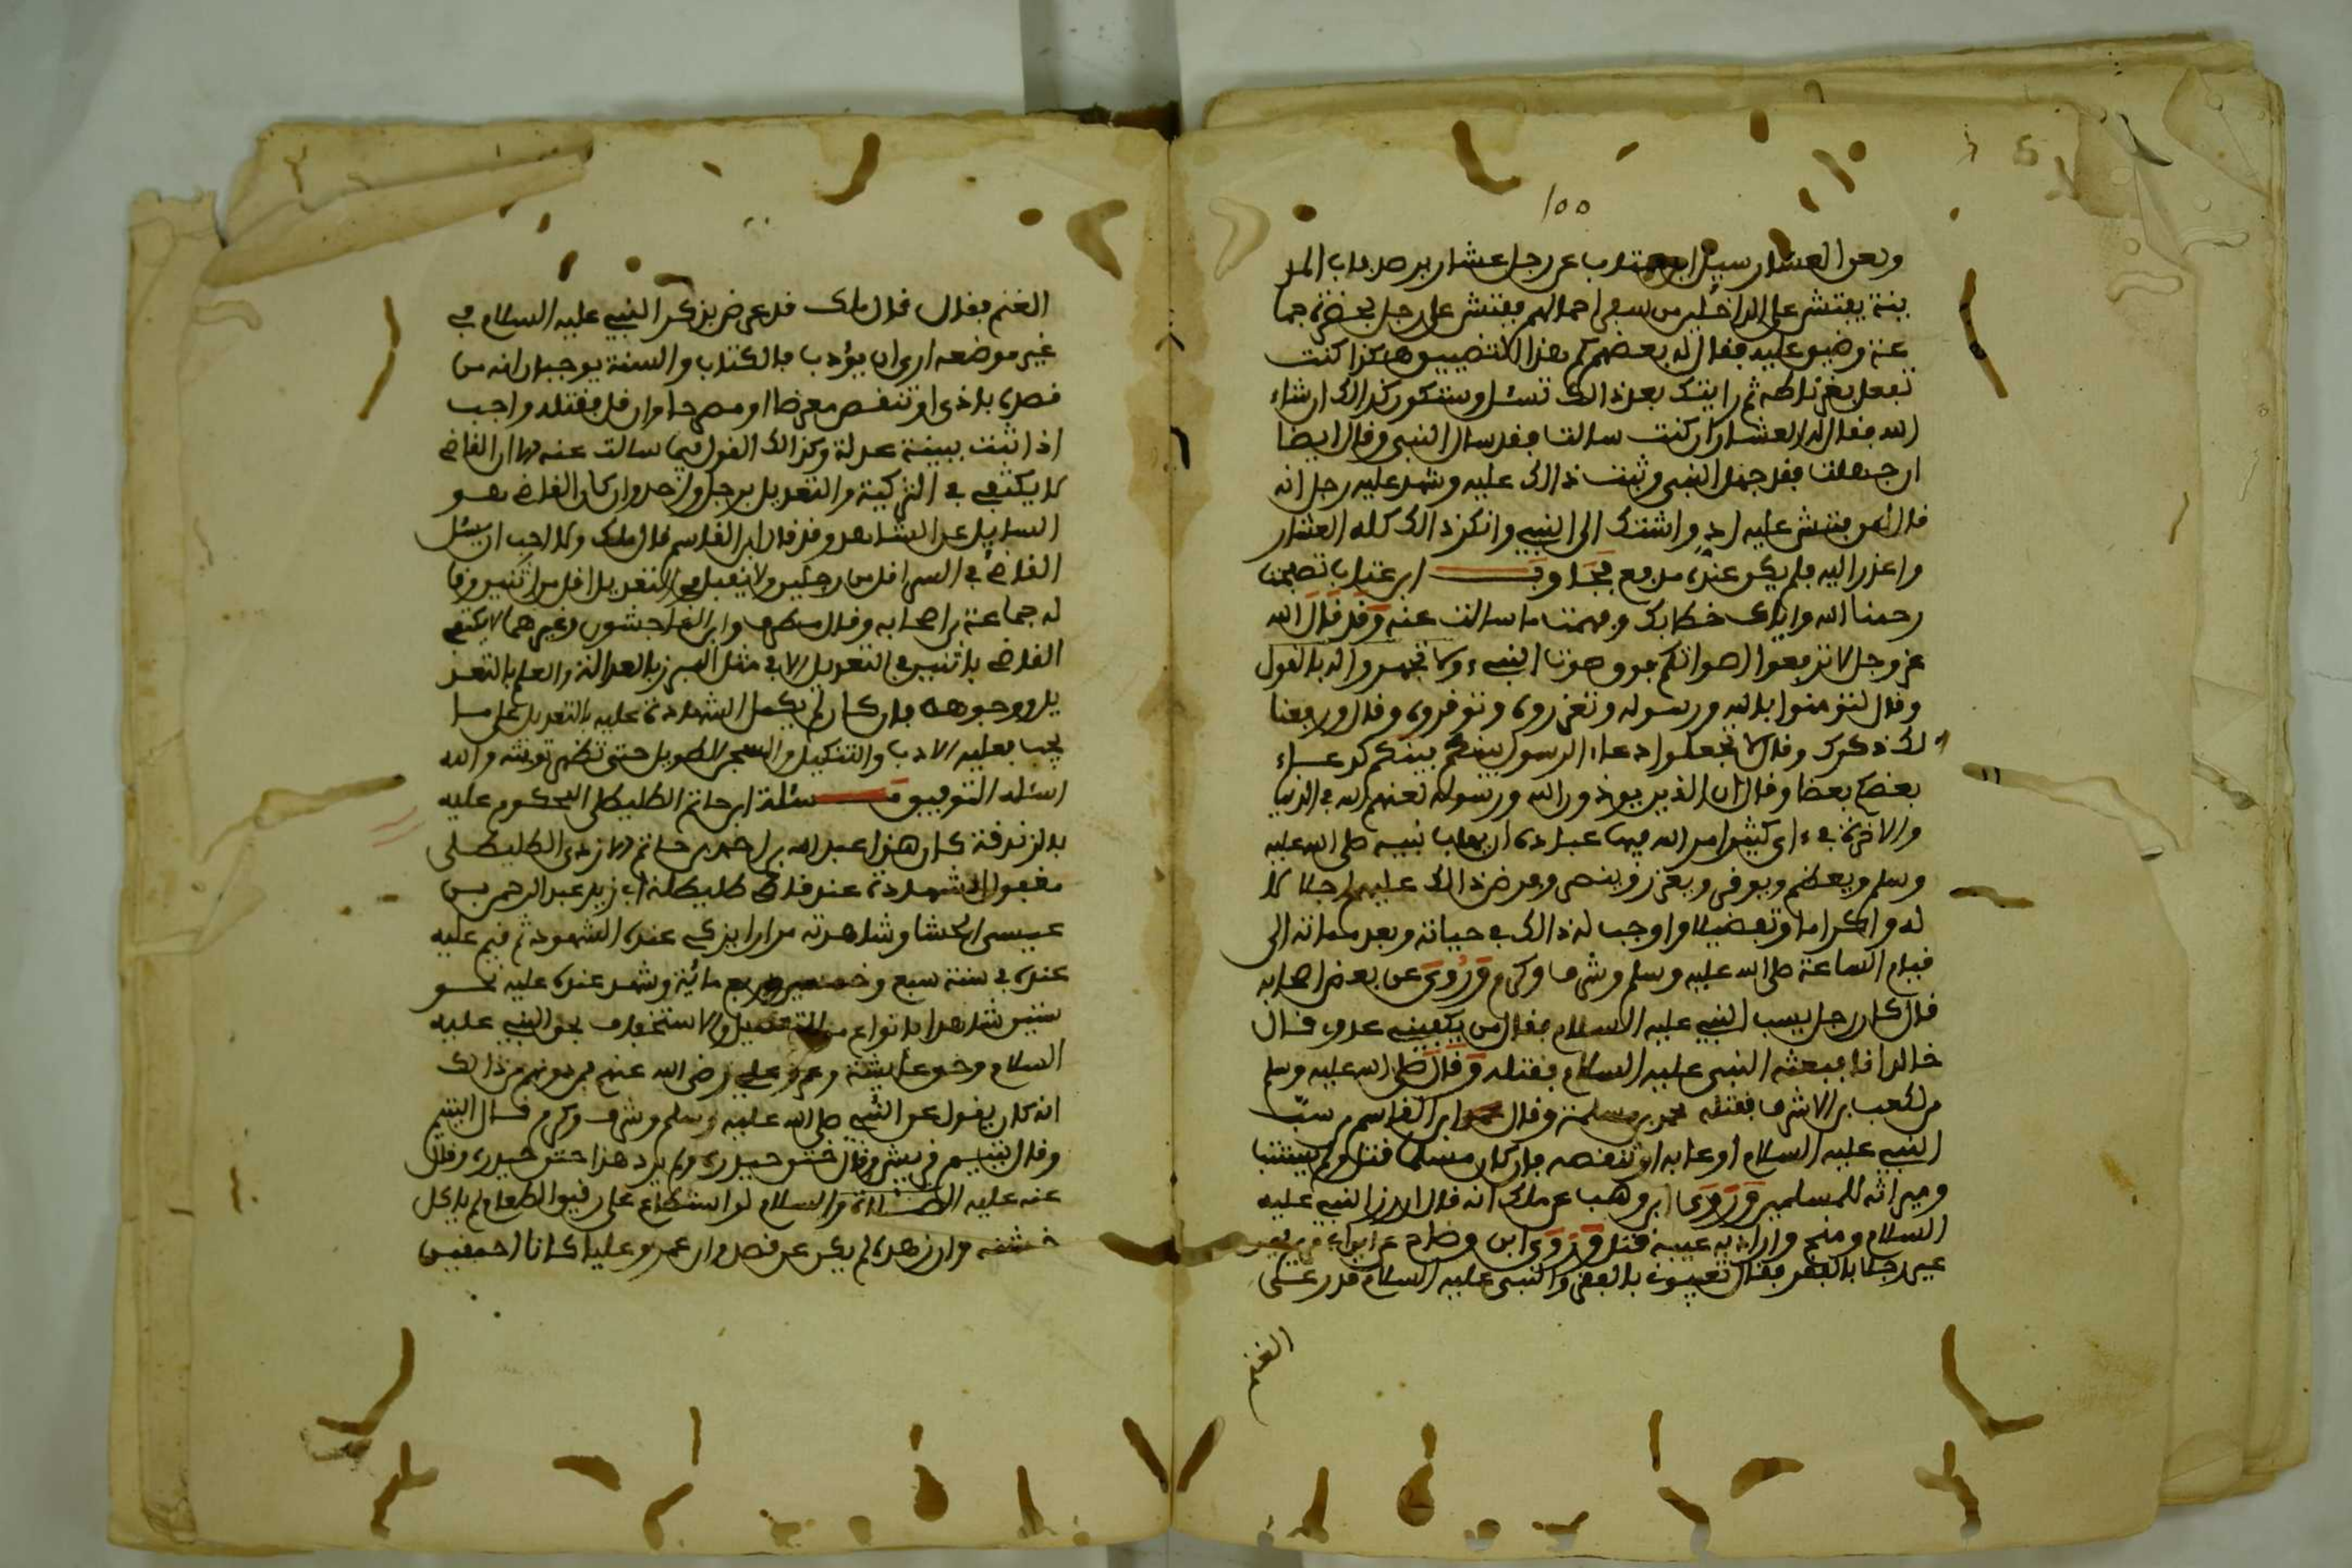 ١٥٥
ونعوا العشار سيل ابن عتاب عن رجل عشار برصد باب المد
ينة يفتش على الداخلين من سفر احمالهم ففتش على رجل بحضرة جما
عة وضيق عليه فقال له بعضهم لم هذا التضييق هكذا كنت
تفعل بغرناطة ثم رايتك بعد ذالك تسئل وستكون كذالك ان شاء
الله فقال له العشار ان كنت سالت فقد سال النبي وقال ايضا
ان جهلت فقد جهل النبي وثبت ذالك عليه وشهد عليه رجل انه
قال لمن فتش عليه اد واشتك الى النبي وانكر ذالك كله العشار
واعذر اليه فلم يكن عنده مدفع فجاوب ابن عتاب تصفحنا
رحمنا الله واياك خطابك وفهمت ما سالت عنه وقد قال الله
عز وجل لا ترفعوا اصواتكم فوق صوت النبيء ولا تجهروا له بالقول
وقال لتومنوا بالله ورسوله وتعزروه وتوقروه وقال ورفعنا
لك ذكرك وقال لا تجعلوا دعاء الرسول بينكم كدعاء
بعضكم بعضا وقال ان الذين يوذون الله ورسوله لعنهم الله في الدنيا
والاخرة في ءاي كثير امر الله فيها عباده ان يهاب نبيه صلى الله عليه
وسلم ويعظم ويوقر ويعزر وينصر وفرض ذالك عليهم اجلالا
له واكراما وتفضيلا واوجب له ذالك في حياته وبعد مماته الى
قيام الساعة صلى الله عليه وسلم وشرف وكرم وروي عن بعض اصحابه
قال كان رجل يسب النبي عليه السلام فقال من يكفيني عدوي قال
خالد انا فبعثه النبي عليه السلام فقتله وقال صلى الله عليه وسلم
من لكعب بن الاشرف فقتله محمد بن مسلمة وقال ابن القاسم من سب
النبي عليه السلام او عابه او تنقصه فان كان مسلما قتل ولم يستتب
وميراثه للمسلمين وروى ابن وهب عن ملك انه قال ازر النبي عليه
السلام وسخ واراد به عيبه قتل وروى ابن وضاح عن
عير رجلا بالفقر فقال تعيرون بالفقر والنبي عليه السلام قد رعى
الغنم
الغنم فقال قال ملك قد عرض بذكر النبي عليه السلام في
غير موضعه ارى ان يؤدب فالكتاب والسنة يوجبان انه من
قصده باذى او تنقص معرضا او مصرحا وان قل فقتله واجب
اذا ثبت ببينة عدلة وكذالك القول فيما سالت عنه لان القاضي
لا يكتفي في التزكية والتعديل برجل واحد وان كان القاضي هو
السايل عن الشاهد وقد قال ابن القاسم قال ملك ولا احب ان يسئل
القاضي في السر اقل من رجلين ولا يقبل في التعديل اقل من اثنين وقا
له جماعة من اصحابه وقال مطرف وابن الماجشون وغيرهما لا يكتفي
القاضي باثنين في التعديل الا في مثل المبرز بالعدالة والعلم بالتعد
يل ووجوهه فان كان لم يكمل الشهادة عليه بالتعديل على ما
يجب فعليه الادب والتنكيل والسجن الطويل حتى تظهر توبته والله
اسئله التوفيق مسئلة ابن حاتم الطليطلي المحكوم عليه
بالزندقة كان هذا عبد الله بن احمد بن حاتم الازدي الطليطلي
مقبول الشهادة عند قاضي طليطلة ابي زيد عبد الرحمن بن
عيسى الحشا وشاهدته مرارا يزكي عنده الشهود ثم قيم عليه
عنده في سنة سبع وخمسين واربع مائية وشهد عنده عليه نحو
ستين شاهدا بانواع من التعطيل والاستخفاف بحق النبي عليه
السلام وحق عايشة وعمر وعلي رضي الله عنهم فمن دونهم من ذالك
انه كان يقول عن النبي صلى الله عليه وسلم وشرف وكرم قال اليتيم
وقال يتيم قريش وقال ختن حيدرة ولم يرد هذا ختن حيدرة وقال
عنه عليه الصلاة والسلام لو استطاع على رقيق الطعام لم ياكل
خشنه وان زهده لم يكن عن قصد وان عمر وعليا كانا احمقين